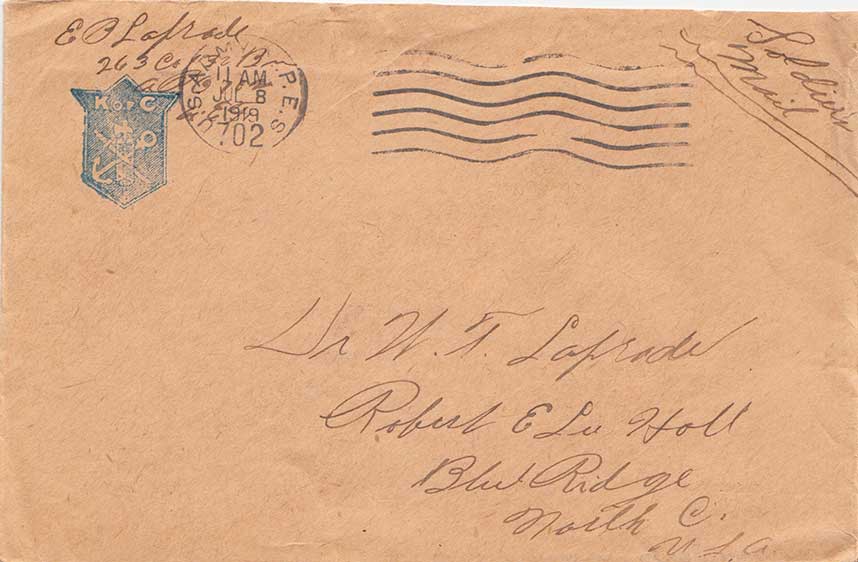 E P Laprade
263 Co
K OF C
11 AM
JUL 8
1919
702
P.E.S.
Soldiers
Mail
Dr W. T. Laprade
Robert E Lee Hall
Blue Ridge
North C.
U S A